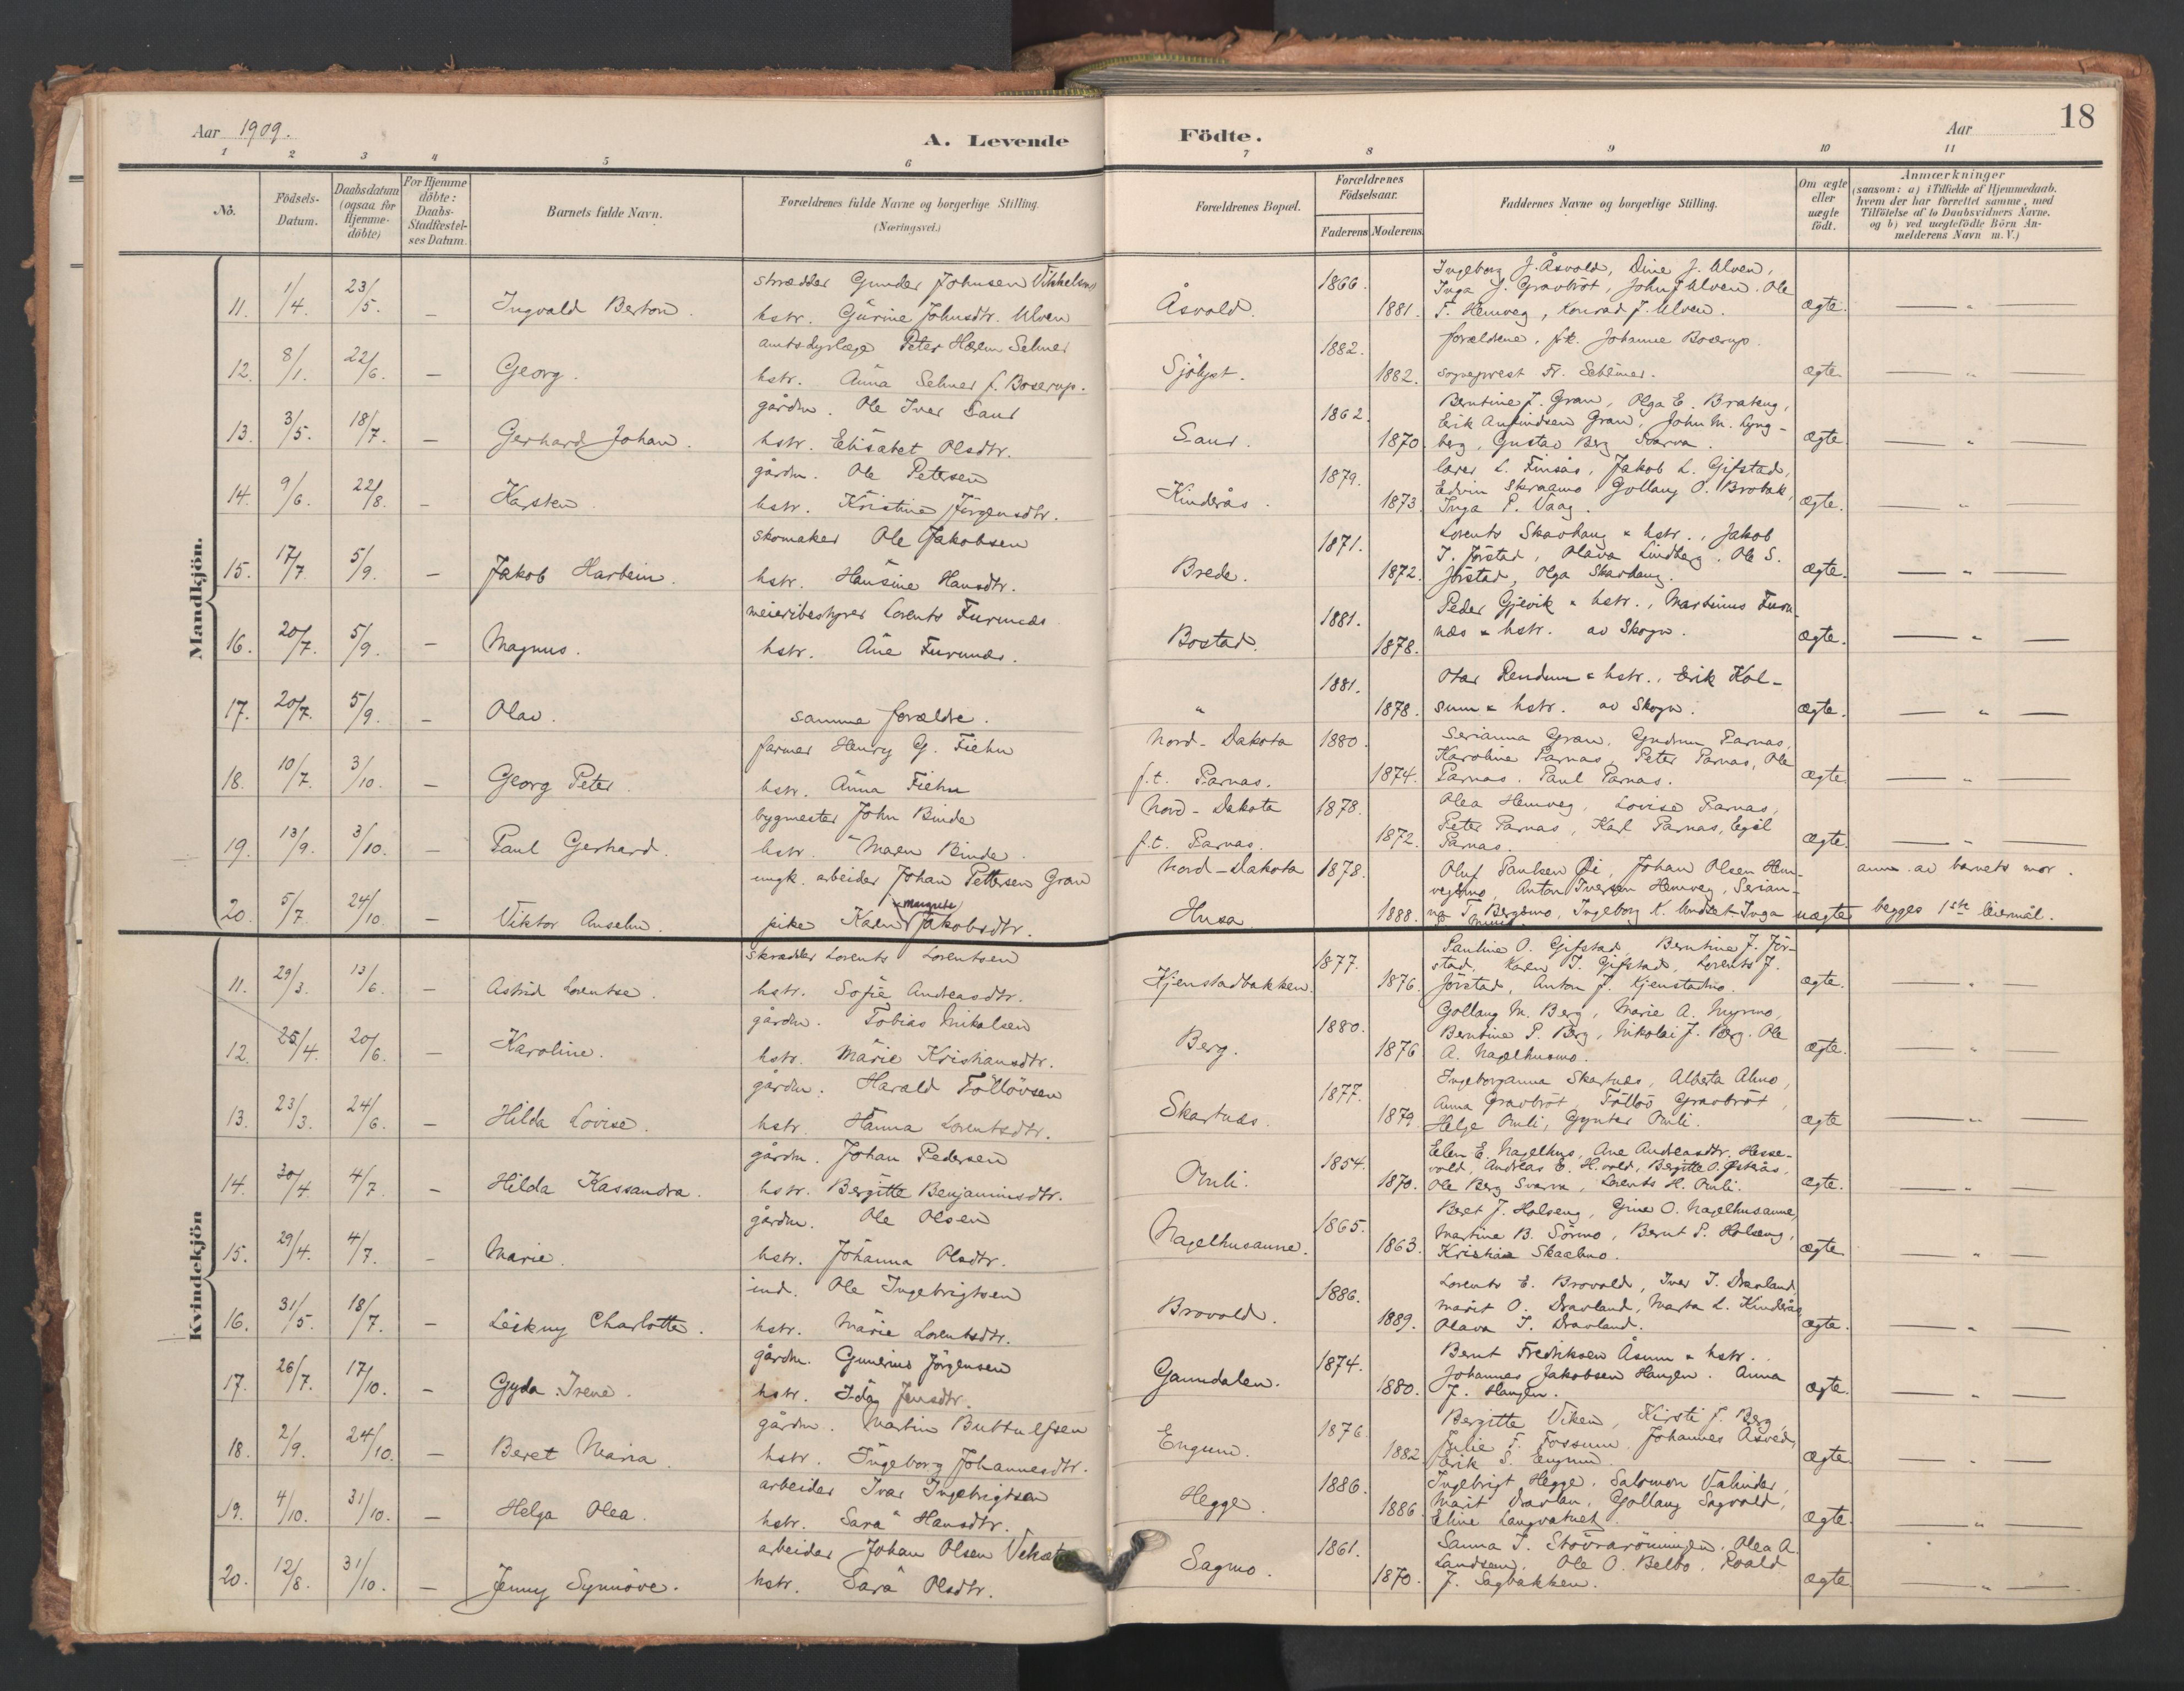 Aar 1909.
A. Levende Födte.
Aar
18
1 2 3 4 5 6 7 8 9 10 11
No.
Födsels-Datum.
Daabsdatum (ogsaa for Hjemme-döbte)
For Hjemme döbte: Daabs-Stadfæstel-ses Datum.
Barnets fulde Navn.
Forældrenes fulde Navne og borgerlige Stilling. (Næringsvei.)
Forældrenes Bopæl.
Forældrenes Födselsaar.
Faderens Moderens
Faddernes Navne og borgerlige Stilling.
Om ægte eller uægte födt.
Anmærkninger (saasom: a) i Tilfælde af Hjemmedaab. hvem der har forrettet samme, med Tilföielse af to Daabsvidners Navne. og b) ved uægtefödte Börn An-melderens Navn m. V.)
Mandkjön.
11. 1/4. 23/5. — Ingvald Berton.
skrædder Gunder Johnsen
hstr. Gurine Johnsdtr. Ulven
Åsvold. 1866. 1881.
Ingeborg J. Åsvold, Dine J. Ulven,
Inga J. Gravbröt, John J. Ulven. Ole
T. Hemveg, Konrad J. Ulven.
ægte. — " —
12. 8/1. 22/6. — Georg.
amtsdyrlæge Peter Selmer
hstr. Anna Selmer f. Boserup.
Sjölyst. 1882. 1882.
forældrene, frk. Johanne Boserup.
sogneprest Fr. Selmer.
ægte — " —
13. 3/5. 18/7. — Gerhard Johan.
gårdm. Ole Iver Saur
hstr. Elisabet Olsdtr.
Saur. 1862. 1870.
Berntine J. Gran, Olga E. Brateng,
Erik Gran, John M. Lyng-
berg, Gustav Berg Svarva.
ægte — " —
14. 9/6. 22/8. — Karsten
gårdm. Ole Petersen
hstr. Kristine Jörgensdtr.
Kinderås. 1879. 1873.
lærer L. Finsås, Jakob L. Gifstad,
Edvin Skraamo Gollaug O. Brobak,
Inga P. Vaag.
ægte. — " —
15. 17/7. 5/9. — Jakob Harbein.
skomaker Ole Jakobsen
hstr. Hansine Hansdtr.
Brede. 1871. 1872.
Lorents Skavhaug & hstr., Jakob
J. Jörstad, Olava Lindberg. Ole S.
Jörstad, Olga Skavhaug.
ægte. — " —
16. 20/7. 5/9. — Magnus.
meieribestyrer Lorents Furunæs
hstr. Ane Furunæs.
Bostad. 1881. 1878.
Peder Gjevik & hstr., Martinus Furu
næs & hstr. av Skogn.
ægte. — " —
17. 20/7. 5/9. — Olav.
samme forældre.
" 1881. 1878.
Otar Rendum & hstr., Erik Kol-
sum & hstr. av Skogn.
ægte. — " —
18. 10/7. 3/10. — Georg Peter.
farmer Henry G. Fiehn
hstr. Anna Fiehn
Nord-Dakota
f.t. Parnas. 1880 1874.
Serianna Gran, Gudrun Parnas,
Karoline Parnas, Peter Parnas, Ole
Parnas. Paul Parnas.
ægte. — " —
19. 13/9. 3/10. — Paul Gerhard.
bygmester John Binde
hstr. Maren Binde.
Nord-Dakota
f.t. Parnas. 1878. 1872.
Olea Hemveg, Lovise Parnas,
Peter Parnas, Karl Parnas, Egil
Parnas.
ægte. — " —
20. 5/7. 24/10. — Viktor Anselm.
ungk. arbeider Johan Pettersen Gran
pike Karen Margrete Jakobsdtr.
Nord-Dakota
Husa 1878. 1888.
Oluf Paulsen Öi, Johan Olsen Hem-
vegsmo, Anton Iversen Hemveg, Serian-
na T. Bergsmo, Ingeborg K. Inga
uægte
anm. av barnets mor.
begges 1ste leiermål.
Kvindekjön
11. 29/3. 13/6. — Astrid Lorentse.
skrædder Lorents Lorentsen
hstr. Sofie Andreasdtr.
Kjenstadbakken. 1877. 1876.
Pauline O. Gifstad, Berntine J. Jör-
stad, Karen J. Gifstad, Lorents J.
Jörstad, Anton J. Kjenstadmo.
ægte. — " —
12. 25/4. 20/6. — Karoline.
gårdm. Tobias Mikalsen
hstr. Marie Kristiansdtr.
Berg. 1880. 1876
Gollaug M. Berg, Marie A. Myrmo,
Berntine P. Berg, Nikolai J. Berg. Ole
A. Nagelhusmo.
ægte. — " —
13. 23/3. 24/6. — Hilda Lovise.
gårdm. Harald Föllövsen
hstr. Hanna Lorentsdtr.
Skartnæs. 1877. 1879
Ingeborganna Skartnæs, Alberta Almo,
Anna Gravbröt, Föllöv Gravbröt,
Helge Omli, Gynter Omli.
ægte — " —
14. 30/4. 4/7. — Hilda Kassandra.
gårdm. Johan Pedersen
hstr. Bergitte Benjaminsdtr.
Omli. 1854. 1870.
Elen E. Nagelhus, Ane Andreasdtr. Hesse-
vold, Andreas E. H.vold, Bergitte O.
Ole Berg Svarva, Lorents H. Omli.
ægte. — " —
15. 29/4. 4/7. — Marie.
gårdm. Ole Olsen
hstr. Johanna Olsdtr.
Nagelhusaune. 1865. 1863.
Beret J. Holseng, Gine O. Nagelhusaune,
Martine B. Sörmo, Bernt P. Holseng,
Kristian Skaalmo.
ægte. — " —
16. 31/5. 18/7. — Leikny Charlotte.
ind. Ole Ingebrigtsen
hstr. Marie Lorentsdtr.
Brovold. 1886. 1889.
Lorents E. Brovold, Iver J. Dravland,
Marit O. Dravland, Marta L. Kinderås
Olava J. Dravland.
ægte. — " —
17. 26/7. 17/10. — Gyda Irene.
gårdm. Gunerius Jörgensen
hstr. Ida Jensdtr.
Gaundalen. 1874. 1880.
Bernt Fredriksen Åsum & hstr.
Johannes Jakobsen Haugen. Anna
J. Haugen.
ægte. — " —
18. 2/9. 24/10. — Beret Maria.
gårdm. Martin Buttulfsen
hstr. Ingeborg Johannesdtr.
Engum. 1876. 1882
Bergitte Viken, Kirsti J. Berg,
Julie F. Fossum, Johannes
Erik S. Engum.
ægte. — " —
19. 4/10. 31/10. — Helga Olea.
arbeider Ivar Ingebrigtsen
hstr. Sara Hansdtr.
Hegge. 1886. 1886
Ingebrigt Hegge. Salomon
Marit Gollaug Sagvold,
Eline Langvatnet.
ægte. — " —
20. 12/8. 31/10. — Jenny Synnöve.
arbeider Johan Olsen
hstr. Sara Olsdtr.
Sagmo. 1861. 1870.
Sanna J. Olea A.
Ole O. Belbo. Roald
J. Sagbakken.
ægte — " —